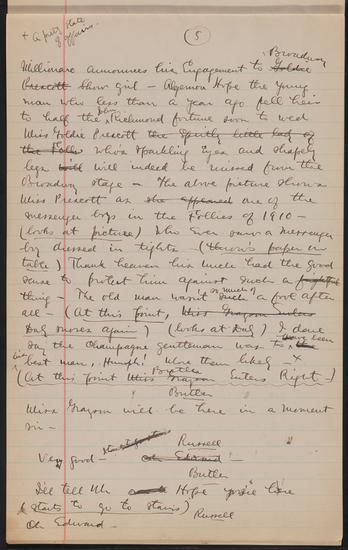 + A pretty state of affairs.
(5)
Millionaire announces his Engagement to Goldie Broadway
Prescott Show girl – Algernon Hope the young
man who less than a year ago fell heir
to half the John Richmond fortune soon to wed
Miss Goldie Prescott the little lady of
the Follies whose sparkling Eyes and shapely
legs will indeed be missed from the
Broadway stage – The above picture shows
Miss Prescott as she appeared one of the
messenger boys in the Follies of 1910 –
(looks at picture) who Ever saw a messenger
boy dressed in tights – (throws paper on
table) Thank heaven his uncle had the good
sense to protect him against such a
thing – The old man wasn't so much of a fool after
all – (At this point, Miss Grayson enters
again) (looks at) I dare
say the Champagne gentleman was to have been
his best man, Humph! More than likely +
(At this point Miss Grayson Butler Enters Right –)
Butler
Miss Grayson will be here in a moment
sir –
Russell
Very good – Oh Edward –
Butler
I'll tell Mr Hope you're here
(starts to go to stairs)
Russell
Oh Edward –